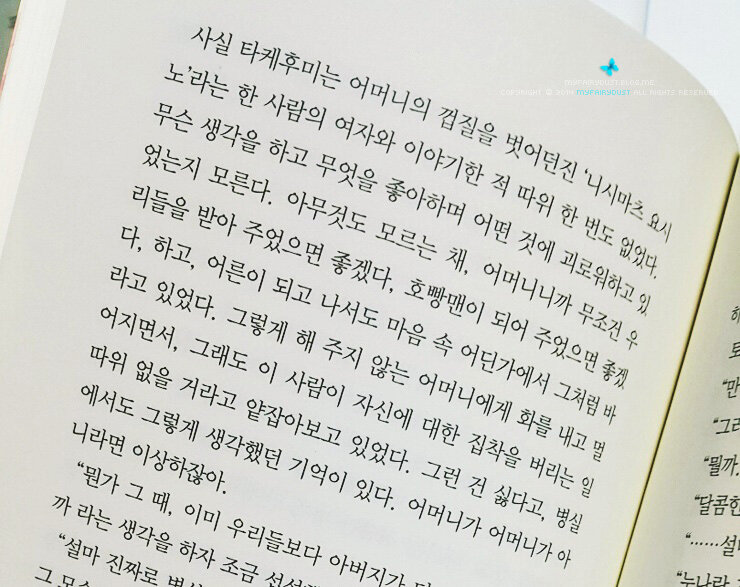 MYFAIRYDUST.BLOG.ME
COPYRIGHT © 2014 MYFAIRYDUST ALL RIGHTS RESERVED
사실 타케후미는 어머니의 껍질을 벗어던진 ‘니시마츠 요시
노’라는 한 사람의 여자와 이야기한 적 따위 한 번도 없었다.
무슨 생각을 하고 무엇을 좋아하며 어떤 것에 괴로워하고 있
었는지 모른다. 아무것도 모르는 채, 어머니니까 무조건 우
리들을 받아 주었으면 좋겠다, 호빵맨이 되어 주었으면 좋겠
다, 하고, 어른이 되고 나서도 마음 속 어딘가에서 그처럼 바
라고 있었다. 그렇게 해 주지 않는 어머니에게 화를 내고 멀
어지면서, 그래도 이 사람이 자신에 대한 집착을 버리는 일
따위 없을 거라고 얕잡아보고 있었다. 그런 건 싫다고, 병실
에서도 그렇게 생각했던 기억이 있다. 어머니가 어머니가 아
니라면 이상하잖아.
“뭔가 그 때, 이미 우리들보다 아버지가
까 라는 생각을 하자 조금
“설마 진짜로
“만
“그러
“뭘까.
“달콤한
“……설마
“누나라